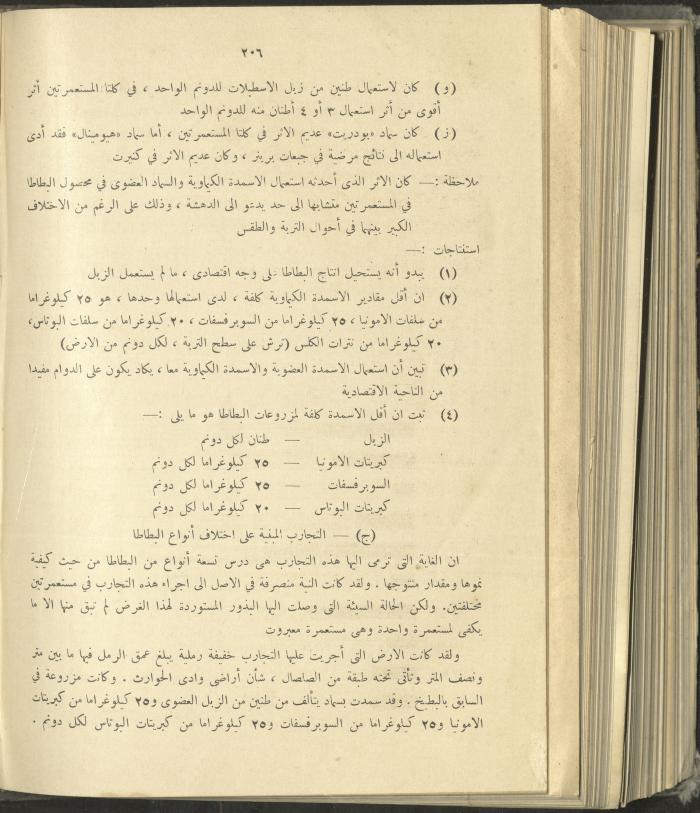 ٢٠٦
(و) كان لاستعمال طنين من زبل الاسطبلات للدونم الواحد ، في كلتا المستعمرتين أثر
أقوى من أثر استعمال ٣ أو ٤ أطنان منه للدونم الواحد
(ز) كان سماد «بودريت» عديم الاثر في كلتا المستعمرتين ، أما سماد «هيومينال» فقد أدى
استعماله الى نتائج مرضية في جبعات برينر ، وكان عديم الاثر في كنيرت
ملاحظة :— كان الاثر الذى أحدثه استعمال الاسمدة الكيماوية والسماد العضوى في محصول البطاطا
في المستعمرتين متشابها الى حد يدعو الى الدهشة ، وذلك على الرغم من الاختلاف
الكبير بينهما في أحوال التربة والطقس
استنتاجات :—
(١) يبدو أنه يستحيل انتاج البطاطا على وجه اقتصادى ، ما لم يستعمل الزبل
(٢) ان أقل مقادير الاسمدة الكيماوية كلفة ، لدى استعمالها وحدها ، هو ٢٥ كيلوغراما
من سلفات الامونيا ، ٢٥ كيلوغراما من السوبرفسفات ، ٢٠ كيلوغراما من سلفات البوتاس،
٢٠ كيلوغراما من نترات الكلس (ترش على سطح التربة ، لكل دونم من الارض)
(٣) تبين أن استعمال الاسمدة العضوية والاسمدة الكيماوية معا ، يكاد يكون على الدوام مفيدا
من الناحية الاقتصادية
(٤) ثبت ان أقل الاسمدة كلفة لمزروعات البطاطا هو ما يلى :—
الزبل — طنان لكل دونم
كبريتات الامونيا — ٢٥ كيلوغراما لكل دونم
السوبرفسفات — ٢٥ كيلوغراما لكل دونم
كبريتات البوتاس — ٢٠ كيلوغراما لكل دونم
(ج) — التجارب المبنية على اختلاف أنواع البطاطا
ان الغاية التى ترمى اليها هذه التجارب هى درس تسعة أنواع من البطاطا من حيث كيفية
نموها ومقدار منتوجها . ولقد كانت النية منصرفة في الاصل الى اجراء هذه التجارب في مستعمرتين
مختلفتين. ولكن الحالة السيئة التى وصلت اليها البذور المستوردة لهذا الغرض لم تبق منها الا ما
يكفى لمستعمرة واحدة وهى مستعمرة معبروت
ولقد كانت الارض التى أجريت عليها التجارب خفيفة رملية يبلغ عمق الرمل فيها ما بين متر
ونصف المتر وتأتى تحته طبقة من الصلصال ، شأن أراضى وادى الحوارث . وكانت مزروعة في
السابق بالبطيخ . وقد سمدت بسماد يتألف من طنين من الزبل العضوى و٢٥ كيلوغراما من كبريتات
الامونيا و٢٥ كيلوغراما من السوبرفسفات و٢٥ كيلوغراما من كبريتات البوتاس لكل دونم .